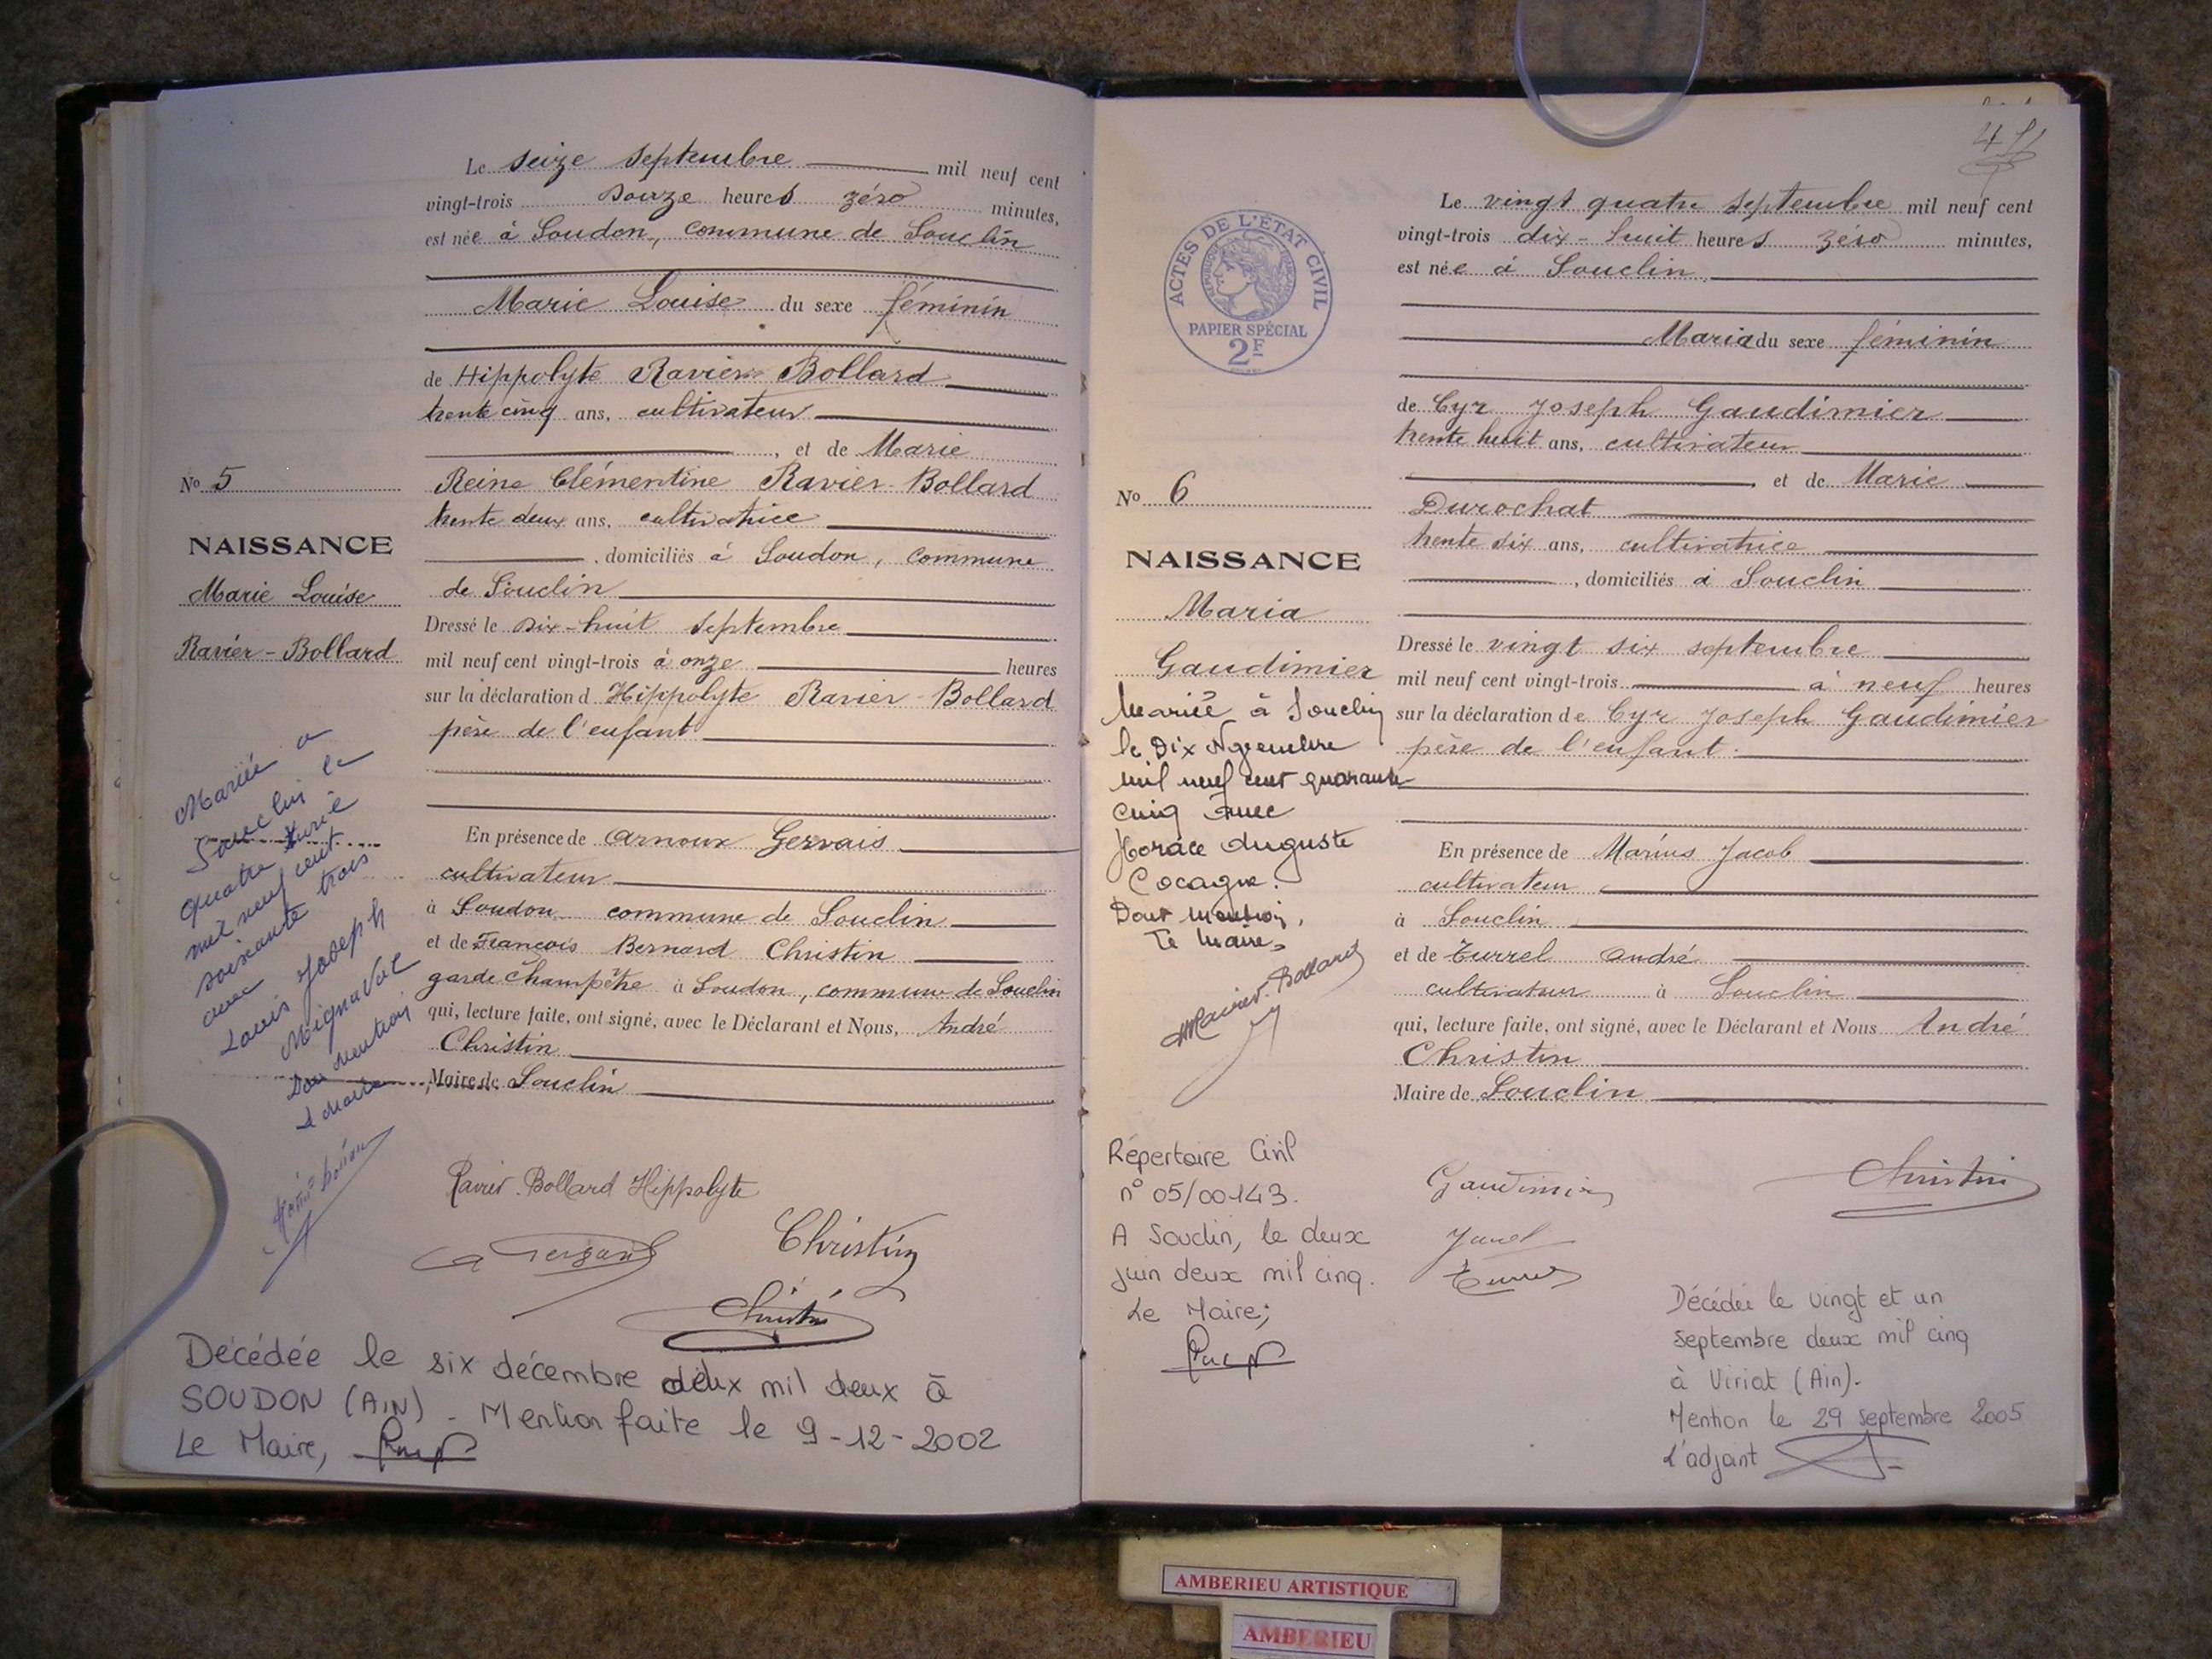 Le seize septembre mil neuf cent
vingt-trois douze heures zéro minutes,
est née à Soudon, commune de Souclin
Marie Louise du sexe féminin
de Hippolyte Ravier-Bollard
trente cinq ans, cultivateur
, et de Marie
Reine Clémentine Ravier-Bollard
trente deux ans, cultivatrice
, domiciliés à Soudon, commune
de Souclin
Dressé le dix-huit septembre
mil neuf cent vingt-trois à onze heures
sur la déclaration d Hippolyte Ravier-Bollard
père de l'enfant
En présence de Arnoux Gervais
cultivateur
à Soudon commune de Souclin
et de François Bernard Christin
garde champêtre à Soudon, commune de Souclin
qui, lecture faite, ont signé, avec le Déclarant et Nous, André
Christin
Maire de Souclin
No 5
NAISSANCE
Marie Louise
Ravier-Bollard
Mariée a
Souclin le
quatre
mil neuf cent
soixante trois
avec
Louis Joseph
Mignavol
Dou mention
Le Maire
Ravier-Bollard Hippolyte
Christin
Christin
Décédée le six décembre deux mil deux à
SOUDON (AIN) - Mention faite le 9-12-2002
Le Maire,
Le vingt quatre septembre mil neuf cent
vingt-trois dix-huit heures zéro minutes,
est née à Souclin
Maria du sexe féminin
de Cyr Joseph Gaudimier
trente huit ans, cultivateur
et de Marie
Durochat
trente six ans, cultivatrice
, domiciliés à Souclin
Dressé le vingt six septembre
mil neuf cent vingt-trois à neuf heures
sur la déclaration de Cyr Joseph Gaudimier
père de l'enfant
En présence de Marius Jacob
cultivateur
à Souclin
et de Turrel André
cultivateur à Souclin
qui, lecture faite, ont signé, avec le Déclarant et Nous André
Christin
Maire de Souclin
ACTES DE L'ÉTAT CIVIL
RÉPUBLIQUE FRANÇAISE
PAPIER SPÉCIAL
2F
No 6
NAISSANCE
Maria
Gaudimier
Mariée à Souclin
le Dix Novembre
mil neuf cent quarante
cinq avec
Horace Auguste
Cocagne.
Dont mention,
Le Maire,
Ravier-Bollard
Répertoire Civil
n° 05/00143.
A Souclin, le deux
juin deux mil cinq.
Le Maire;
Gaudimier
Christin
Turrel
Décédée le vingt et un
septembre deux mil cinq
à Viriat (Ain).
Mention le 29 septembre 2005
L'adjoint
AMBERIEU ARTISTIQUE
AMBERIEU